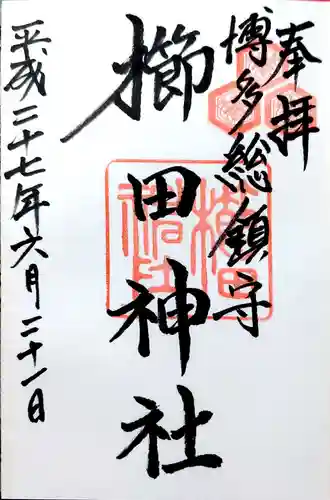 奉拝
博多総鎮守
櫛田神社
平成二十七年六月二十一日
櫛田神社